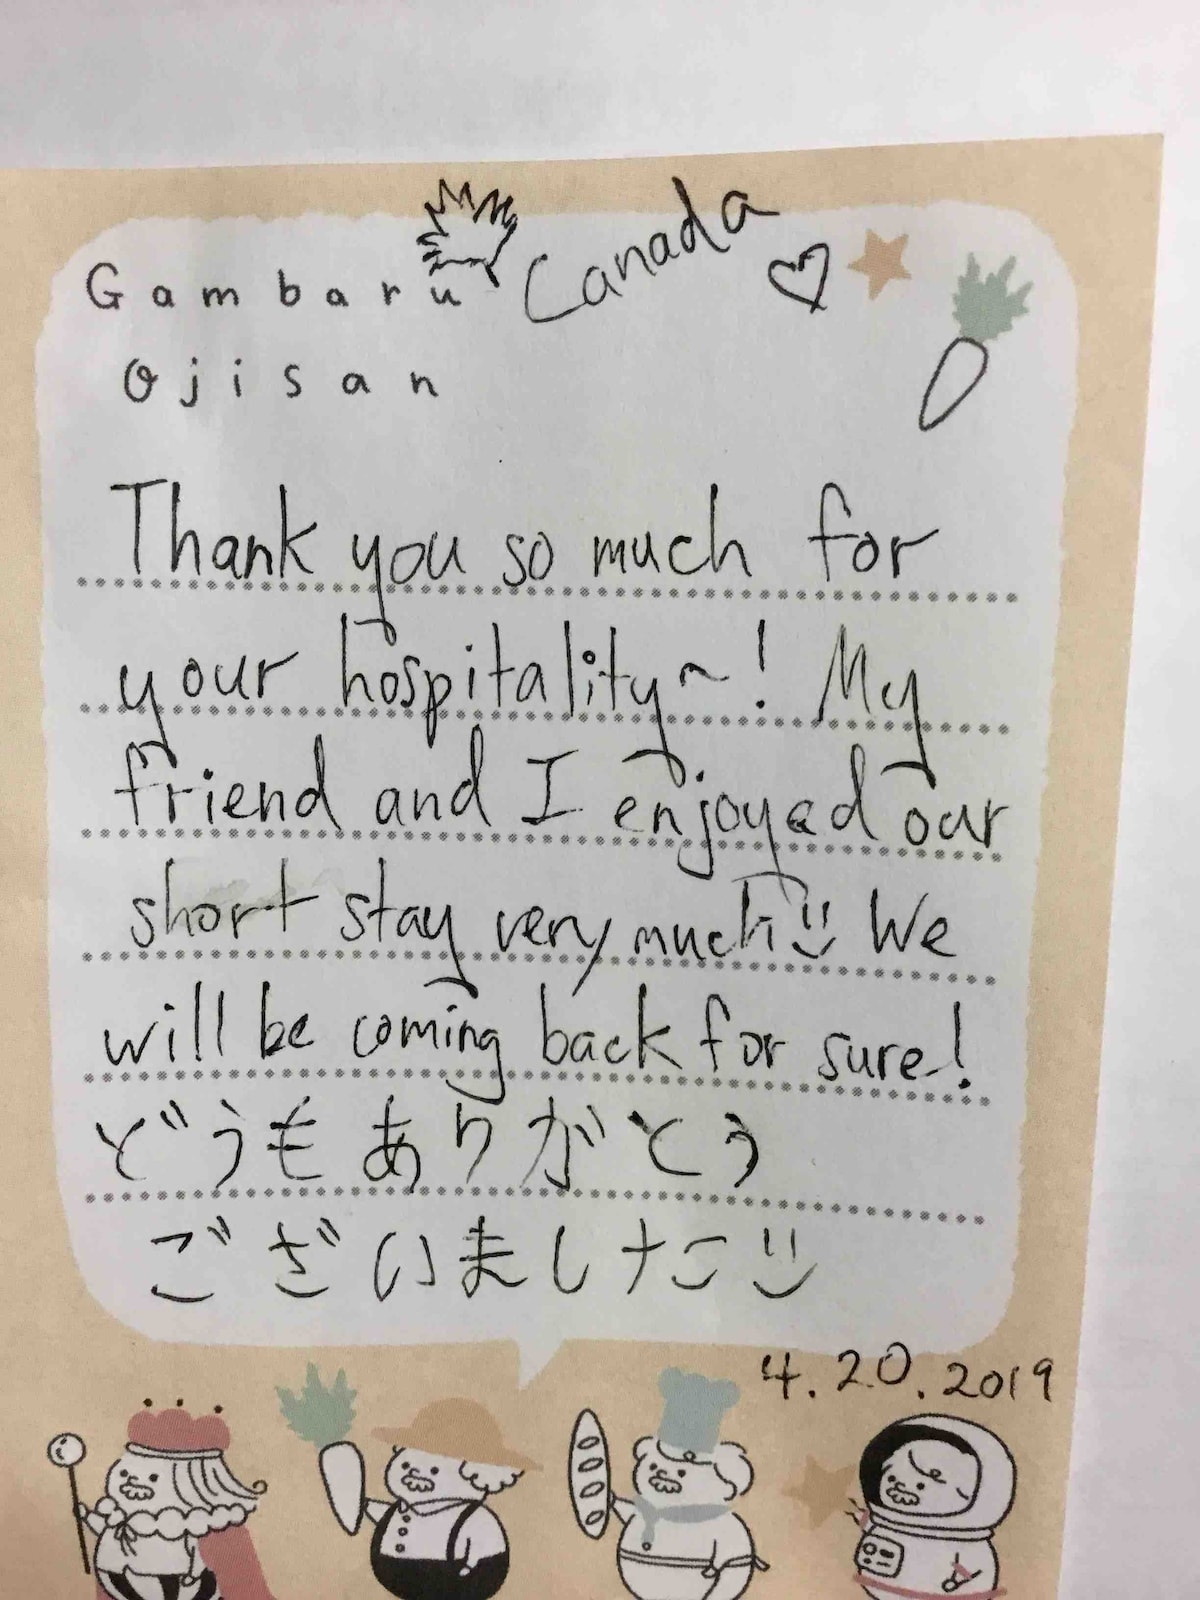 Gambaru
Canada
Ojisan
Thank you so much for
your hospitality~! My
friend and I enjoyed our
short stay very much We
will be coming back for sure!
どうもありがとう
ございました
4.20.2019